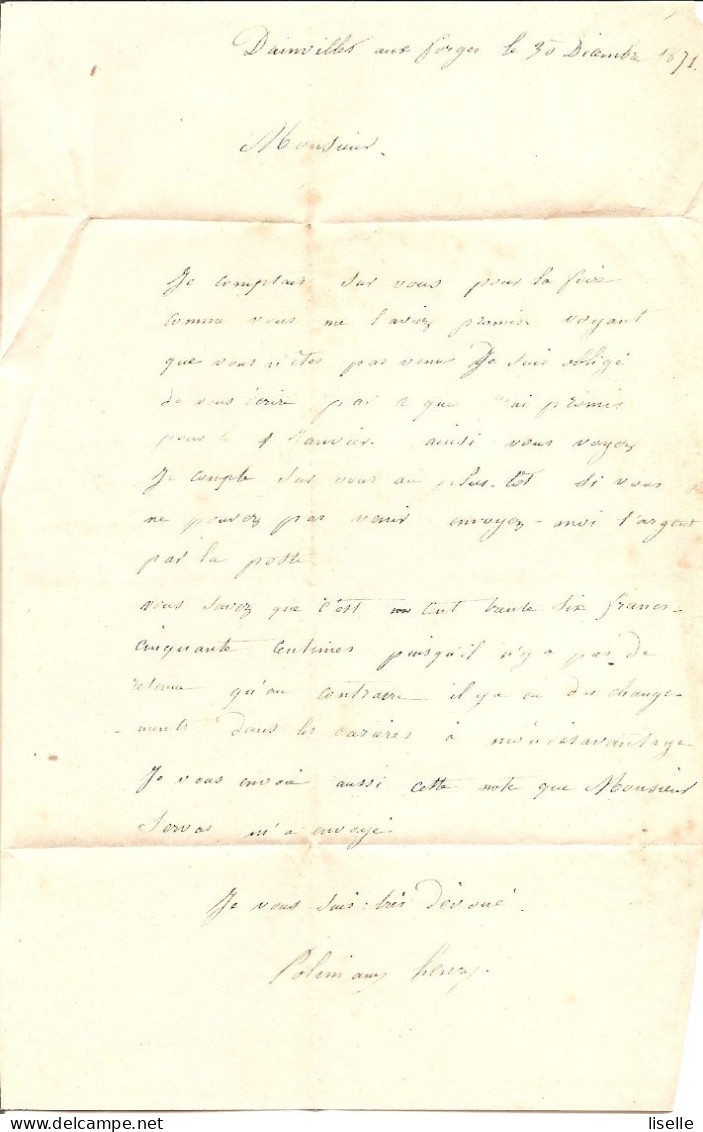 Dainville aux forges le 30 Décembre 1871.
Monsieur.
Je comptais sur vous pour la foire
comme vous me l'aviez promis voyant
que vous n'êtes pas venu Je suis obligé
de vous écrire par ce que j'ai promis
pour le 1 Janvier. ainsi vous voyez
Je compte sur vous au plus-tôt si vous
ne pouvez pas venir envoyez-moi l'argent
par la poste
vous savez que c'est cent trente six francs-
cinquante centimes puisqu'il n'y a pas de
retenue qu'au contraire il y a eu des change-
-ments dans les carières à mon désavantage
Je vous envoie aussi cette note que Monsieur
Servas m'a envoyé
Je vous suis très dévoué.
henry.
liselle